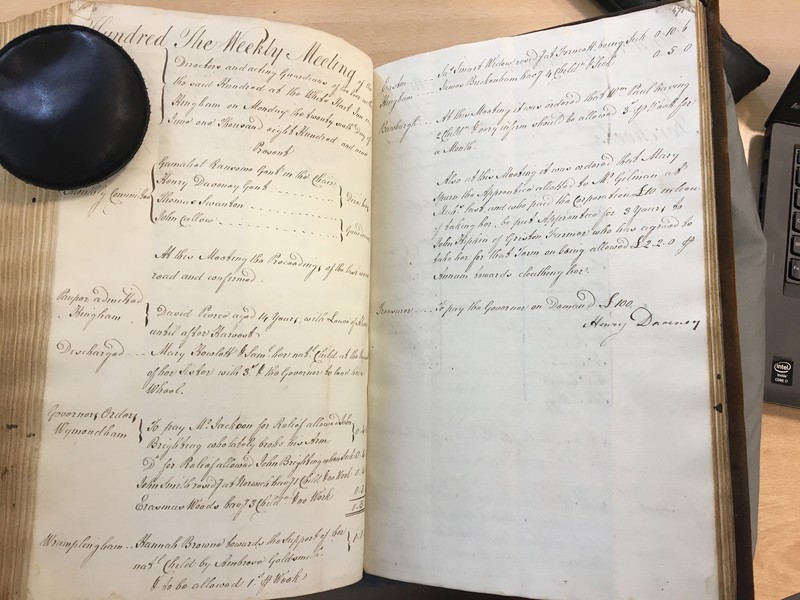 Hundred The Weekly Meeting of the
Directors and acting Guardians of the Poor
the said Hundred at the White Hart Inn
Hingham on Monday the twenty sixth day of
June one Thousand eight Hundred and nine
Present
Gamaliel Ransome Gent in the Chair
Henry Daveney Gent
Thomas Swanton
John Callow
Directors
Guardians
Monthly Committee
At this Meeting the Proceedings of the last were
read and confirmed.
Pauper admitted
Hingham
David Pierce aged 14 Years, with Leave of
until after Harvest
Discharged
Mary Howlett & Saml. her natl. Child at the
of her Sister with 3s. & the Governor to lend her
Wheel.
Governors Orders
Wymondham
To pay Mr. Jackson for Relief allowed John
Brighting who lately broke his Arm
Do. for Relief allowed John Brighting when Sick
John Smith resid. at Norwich havg. 1 Child & no Work
Erasmus Woods havg. 3 Childn. & no Work
Wramplingham
Hannah Browne towards the Support of her
natl. Child by Ambrose Goldsmith
& to be allowed 1s. ⅌ Week
571
Smart Widow resid. at Forncett being Sick 0.10.6
Hingham James Buckenham havg. 4 Childn. & Sick 0.5.0
At this Meeting it was ordered that Wm. Paul having
2 Childn. & very infirm should be allowed 3s. ⅌ Week for
a Month.
Also at this Meeting it was ordered that Mary
Spurn the Apprentice allotted to Mr. Gilman at
Michs. last and who paid the Corporation £10 in lieu
of taking her, be put Apprentice for 3 Years to
John Pipkin of Griston Farmer who has agreed to
take her for that Term on being allowed £2.2.0 ⅌
Annum towards cloathing her.
Treasurer To pay the Governor on Demand £100.
Henry Daveney
intel
CORE i7